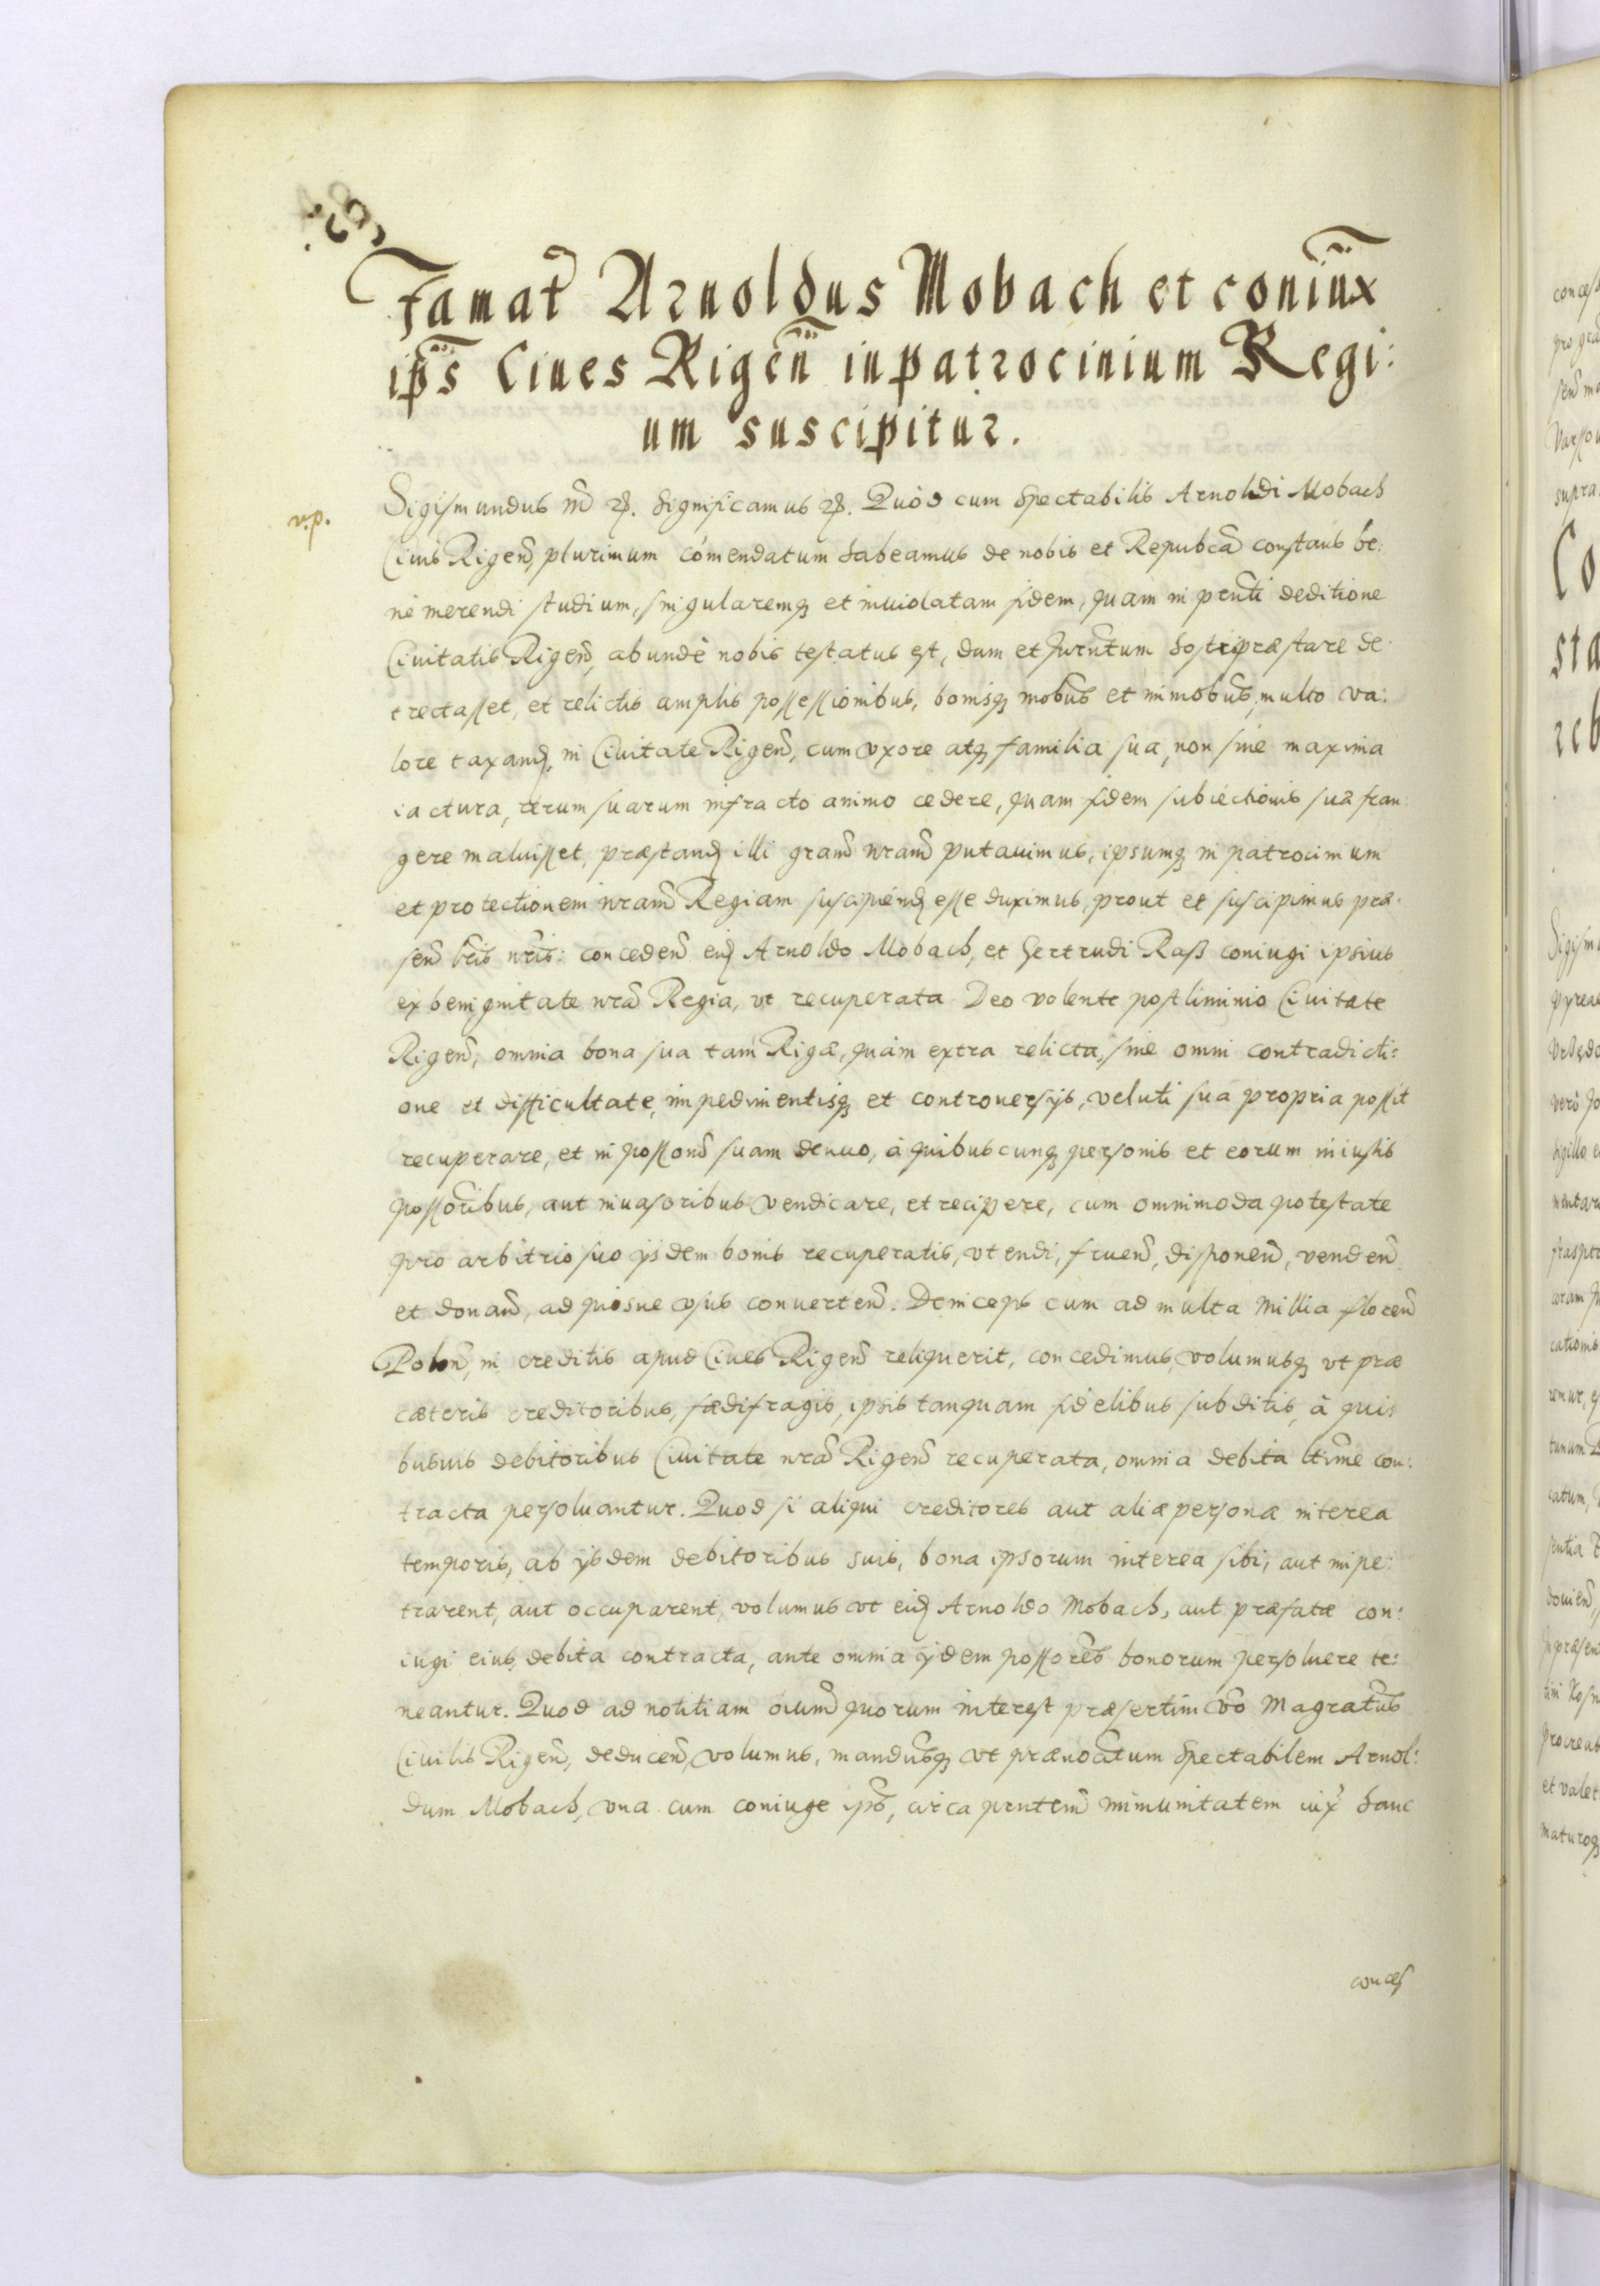 Famat̃ Arnoldus Mobach et coniũx
ip̃s Ciues Rigeñ in patrocinium Regi:
um suscipitur.
v.p.
Sigismundus III etc. Significamus etc. Quòd cum Spectabilis Arnoldi Mobach
Ciuis Rigeñ, plurimum cõmendatum habeamus de nobis et Repubcã constans be:
nè merendi studium, singularemq; et inuiolatam fidem, quam in prñti deditione
Ciuitatis Rigeñ, abundè nobis testatus est, dum et Jurñtum hosti præstare de:
trectasset, et relictis amplis possessionibus, bonisq; mobũs et immobũs, multo va:
lore taxand, in Ciuitate Rigeñ, cum vxore atq; familia sua, non sine maxima
iactura, rerum suarum infracto animo cedere, quam fidem subiectionis suæ fran:
gere maluisset, præstand illi grañ nrañ putauimus, ipsumq; in patrocinium
et protectionem nrañ Regiam suscipiend esse duximus, prout et suscipimus præ:
señ lr̃is nr̃is: concedeñ eid Arnoldo Mobach, et Gertrudi Raß coniugi ipsius
ex benignitate nrã Regia, vt recuperata Deo volente postliminio Ciuitate
Rigeñ, omnia bona sua tam Rigæ, quàm extra relicta, sine omni contradicti:
one et difficultate, impedimentisq; et controuersijs, veluti sua propria possit
recuperare, et in possoñ suam denuo, à quibuscunq; personis et eorum iniustis
possor̃ibus, aut inuasoribus vendicare, et recipere, cum omnimoda potestate
pro arbitrio suo ijsdem bonis recuperatis, vtendi, frueñ, disponeñ, vendeñ
et donañ, ad quosue vsus conuerteñ. Deinceps cum ad multa millia floreñ
Poloñ, in creditis apud Ciues Rigeñ reliquerit, concedimus, volumusq; vt præ
cæteris creditoribus, fædifragis, ipsis tanquam fidelibus subditis, à qui:
busuis debitoribus Ciuitate nrã Rigeñ recuperata, omnia debita ltĩme con:
tracta persoluantur. Quod si aliqui creditores aut aliæ personæ interea
temporis, ab ijsdem debitoribus suis, bona ipsorum interea sibi, aut impe:
trarent, aut occuparent, volumus vt eid Arnoldo Mobach, aut præfatæ con:
iugi eius, debita contracta, ante omnia ijdem possores bonorum persoluere te:
neantur. Quod ad notitiam oiuñ quorum interest præsertim vo Magratũs
Ciuilis Rigeñ, deduceñ, volumus, mandusq; vt prænoatum Spectabilem Arnol:
dum Mobach, vna cum coniuge ipõ, circa prntem̃ immunitatem iux̃ hanc
conces